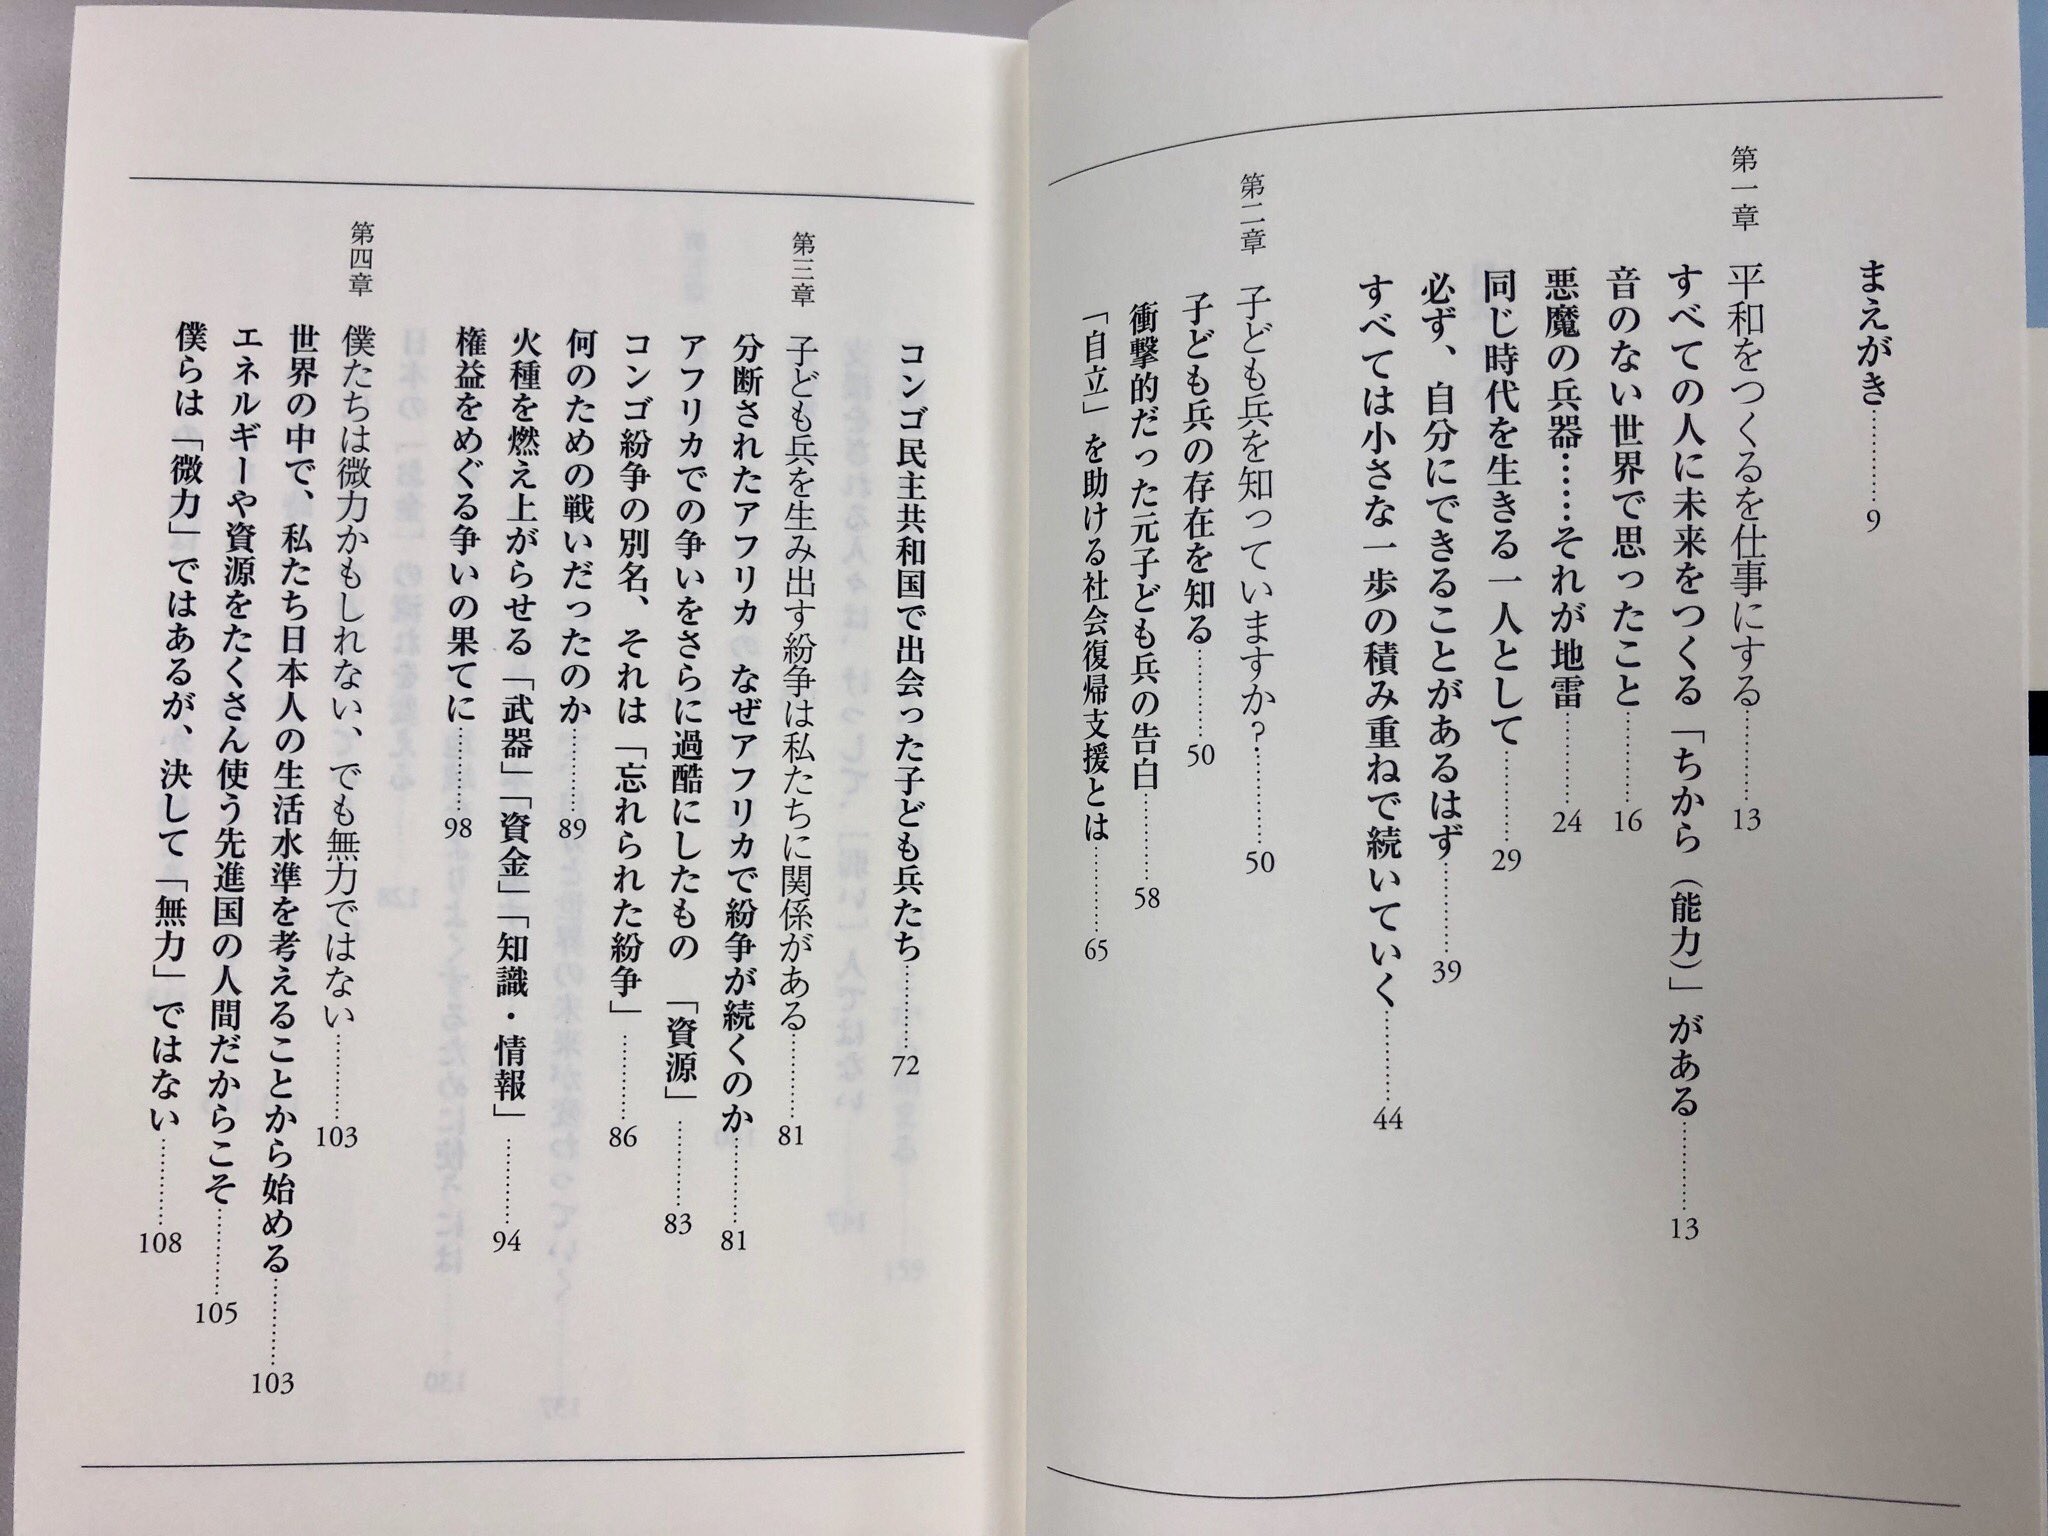 まえがき…………9
第一章　平和をつくるを仕事にする…………13
すべての人に未来をつくる「ちから（能力）」がある…………13
音のない世界で思ったこと…………16
悪魔の兵器……それが地雷…………24
同じ時代を生きる一人として…………29
必ず、自分にできることがあるはず…………39
すべては小さな一歩の積み重ねで続いていく…………44
第二章　子ども兵を知っていますか？…………50
子ども兵の存在を知る…………50
衝撃的だった元子ども兵の告白…………58
「自立」を助ける社会復帰支援とは…………65
コンゴ民主共和国で出会った子ども兵たち…………72
第三章　子ども兵を生み出す紛争は私たちに関係がある…………81
分断されたアフリカ　なぜアフリカで紛争が続くのか…………81
アフリカでの争いをさらに過酷にしたもの　「資源」…………83
コンゴ紛争の別名、それは「忘れられた紛争」…………86
何のための戦いだったのか…………89
火種を燃え上がらせる「武器」「資金」「知識・情報」…………94
権益をめぐる争いの果てに…………98
第四章　僕たちは微力かもしれない、でも無力ではない…………103
世界の中で、私たち日本人の生活水準を考えることから始める…………103
エネルギーや資源をたくさん使う先進国の人間だからこそ…………105
僕らは「微力」ではあるが、決して「無力」ではない…………108